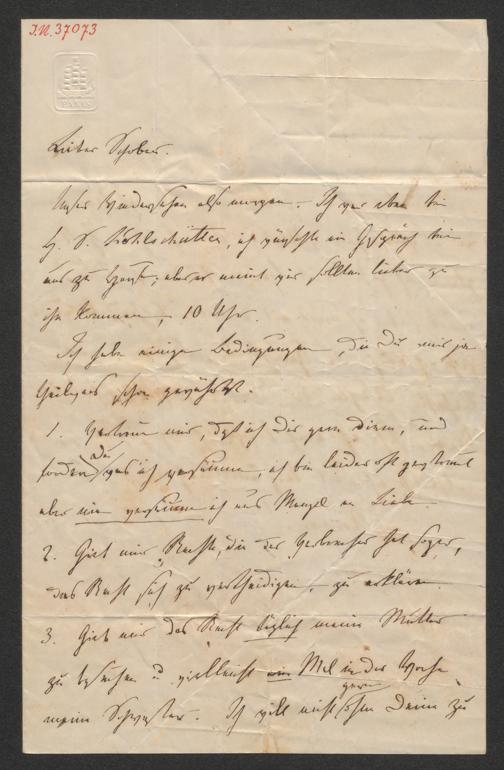 I.N. 37073
PARIS
Lieber Schober.
Unser Wiedersehen also morgen. Ich war eben bei
H. D. Kohlschütter, ich wünschte ein Gespräch bei
uns zu Haus; aber er meint wir sollten lieber zu
ihm kommen, 10 Uhr.
Ich habe einige Bedingungen, die Du mir ja
schon gewährst.
1. Vertraue mir, daß ich Dir gern diene, und
Du
was ich versäume, ich bin leider oft
aber nie versäume ich aus Mangel an Liebe.
2. Gieb mir Recht, die der Verbrecher hat sogar,
das Recht sich zu vertheidigen, zu erklären.
3. Gieb mir das Recht täglich meine Mutter
zu besuchen u vielleicht ein Mal in der Woche
meine Schwester. Ich will nicht gern ohne Deine zu